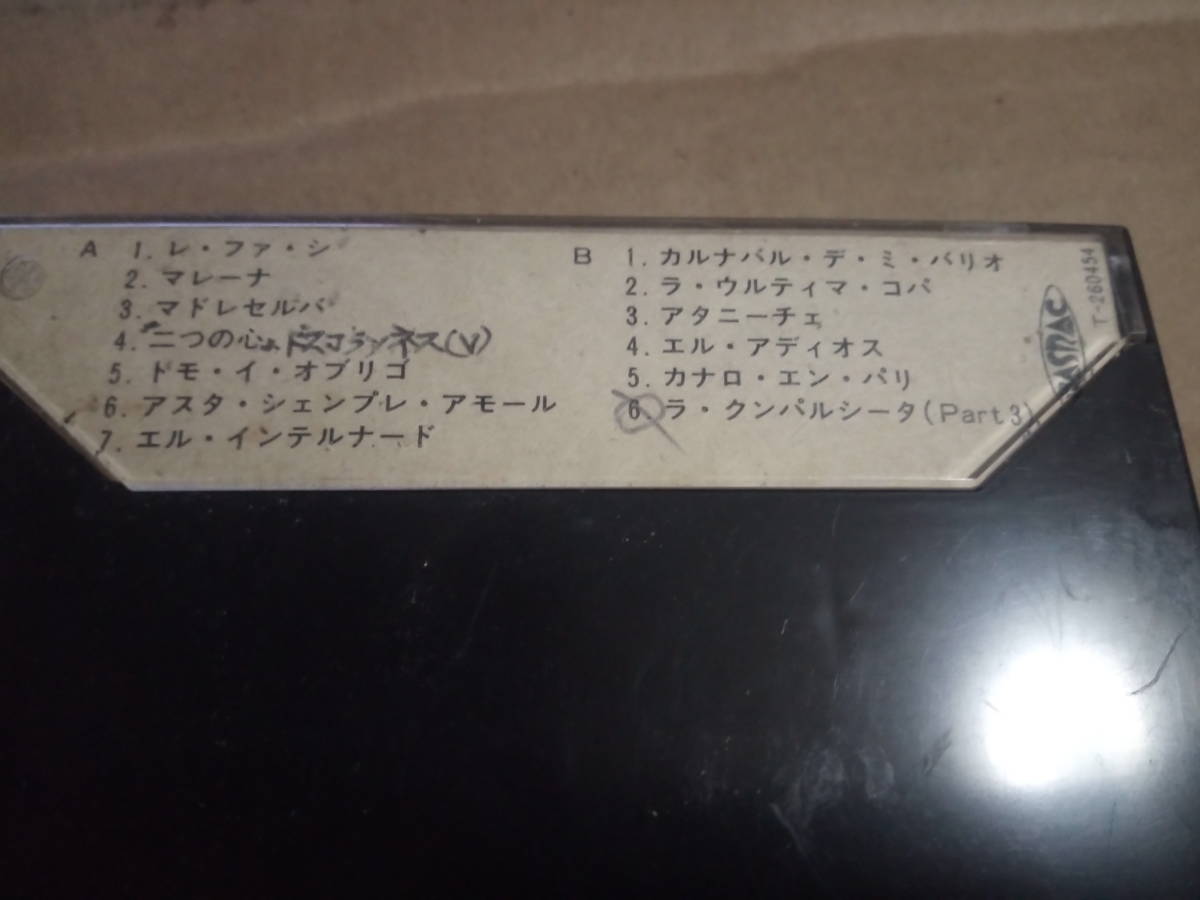 A
1. レ・ファ・シ
2. マレーナ
3. マドレセルバ
4. 二つの心 ドスコランネス(V)
5. ドモ・イ・オブリゴ
6. アスタ・シェンプレ・アモール
7. エル・インテルナード
B
1. カルナバル・デ・ミ・バリオ
2. ラ・ウルティマ・コパ
3. アタニーチェ
4. エル・アディオス
5. カナロ・エン・パリ
6. ラ・クンパルシータ(Part3)
T-260454